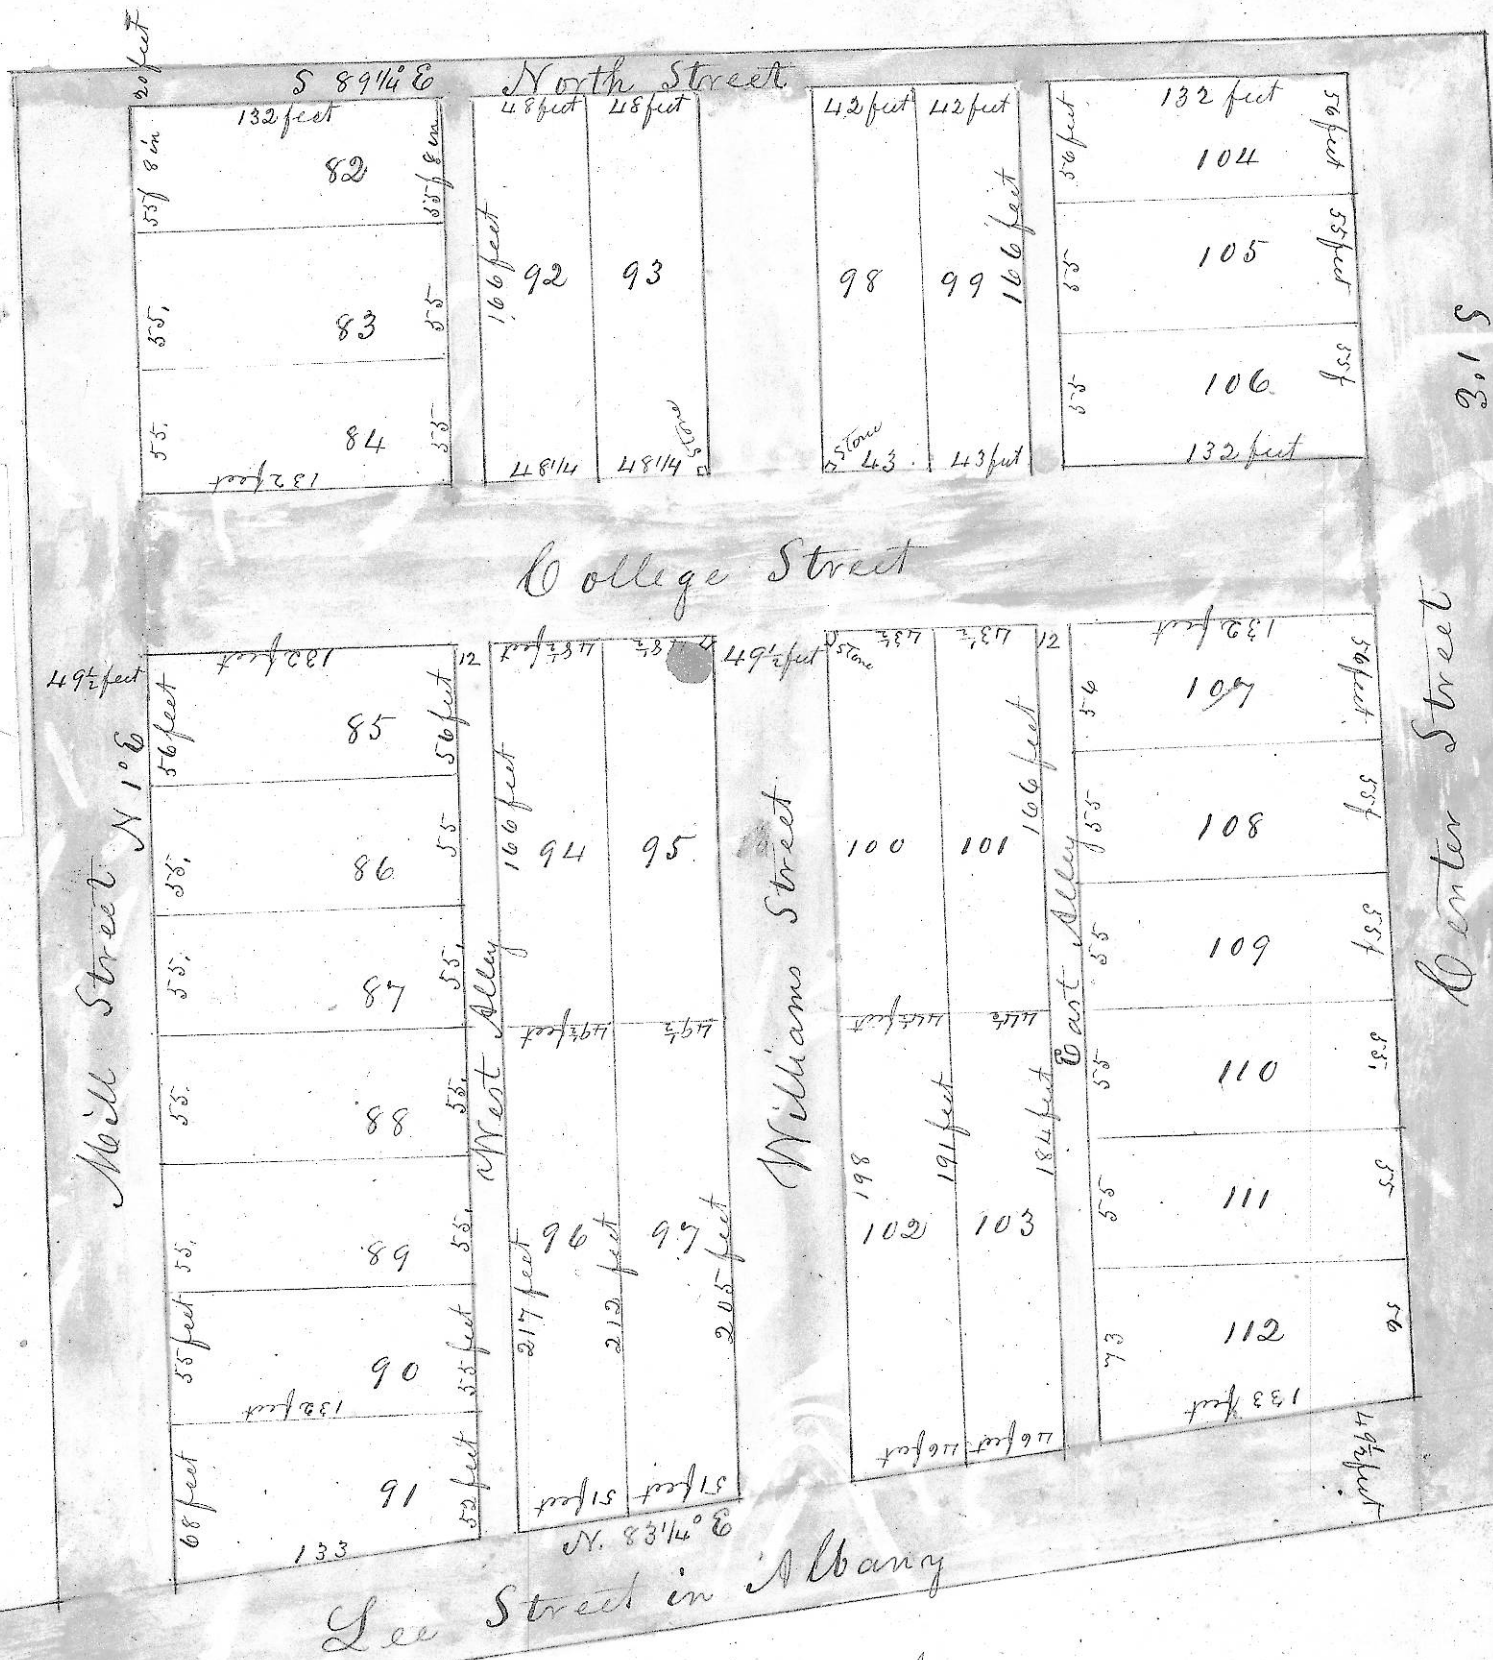 20 feet
S 89 1/4° E North Street
132 feet
55f 8 in
82
55f 8 in
55.
83
55
55.
84
55
132 feet
48 feet
48 feet
166 feet
92
93
48 1/4
48 1/4
Stone
42 feet
42 feet
98
99
166 feet
Stone
43
43 feet
132 feet
56 feet
104
56 feet
55
105
55 feet
55
106
55f
132 feet
S 1° E
College Street
49 1/2 feet
132 feet
12
56 feet
85
56 feet
55.
86
55
55.
87
55.
55.
88
55.
55.
89
55.
55 feet
90
55 feet
132 feet
68 feet
91
52 feet
133
Mill Street N 1° E
West Alley
48 1/2 feet
48 1/2
166 feet
94
95
49 1/2 feet
49 1/2
96
97
217 feet
212 feet
205 feet
51 feet
51 feet
N. 83 1/4° E
49 1/2 feet
Williams Street
Stone
43 1/2
43 1/2
12
100
101
166 feet
44 1/2 feet
44 1/2
198
191 feet
184 feet
102
103
46 feet
46 feet
East Alley
132 feet
56
107
56 feet
55
108
55f
55
109
55f
55
110
55.
55
111
55
73
112
56
133 feet
49 1/2 feet
Center Street
Lee Street in Albany